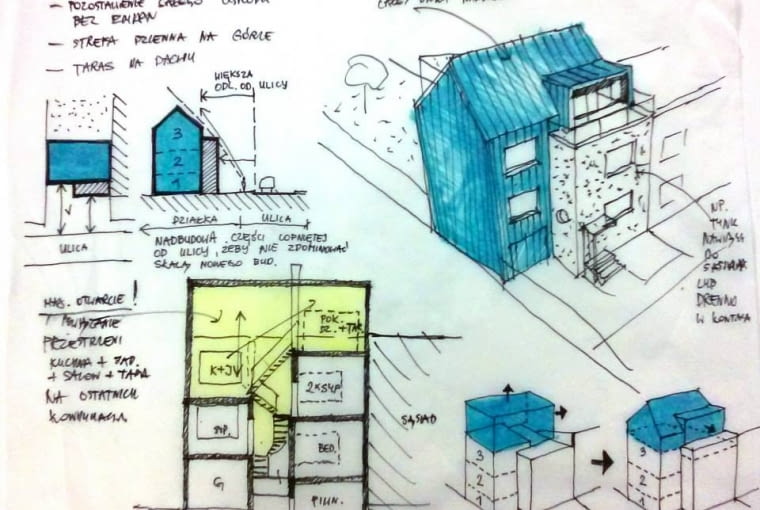 — POZOSTAWIENIE
BEZ ZMIAN
— STREFA DZIENNA NA GÓRZE
— TARAS NA DACHU
WIĘKSZA
ODL. OD ULICY
3
2
1
ULICA
DZIAŁKA
ULICA
NADBUDOWA CZĘŚCI COFNIĘTEJ
OD ULICY, ŻEBY NIE ZDOMINOWAĆ
SKALĄ NOWEGO BUD.
NP.
TYNK
DO
LUB
DREWNO
W
OTWARCIE!
PRZESTRZENI
KUCHNIA + JAD.
+ SALON +
NA OSTATNIEJ
KONDYGNACJI
POK.
DZ. + TAR.
K+J
2×SYP
SYP.
BED.
G
PIWN.
SĄSIAD
3
2
1
3
2
1